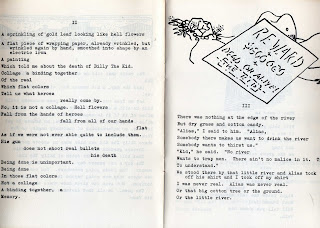 II
A sprinkling of gold leaf looking like hell flowers
A flat piece of wrapping paper, already wrinkled, but
wrinkled again by hand, smoothed into shape by an
electric iron
A painting
Which told me about the death of Billy The Kid.
Collage a binding together
Of the real
Which flat colors
Tell us what heroes
really come by.
No, it is not a collage. Hell flowers
Fall from the hands of heroes
fall from all of our hands
flat
As if we were not ever able quite to include them.
His gun
does not shoot real bullets
his death
Being done is unimportant.
Being done
In those flat colors
Not a collage
A binding together, a
Memory.
REWARD
$10,000
DEAD OR ALIVE!
III
There was nothing at the edge of the river
But dry grass and cotton candy.
"Alias," I said to him. "Alias,
Somebody there makes us want to drink the river
Somebody wants to thirst us."
"Kid," he said. "No river
Wants to trap men. There ain't no malice in it. T
To understand."
We stood there by that little river and Alias took
off his shirt and I took off my shirt
I was never real. Alias was never real.
Or that big cotton tree or the ground.
Or the little river.